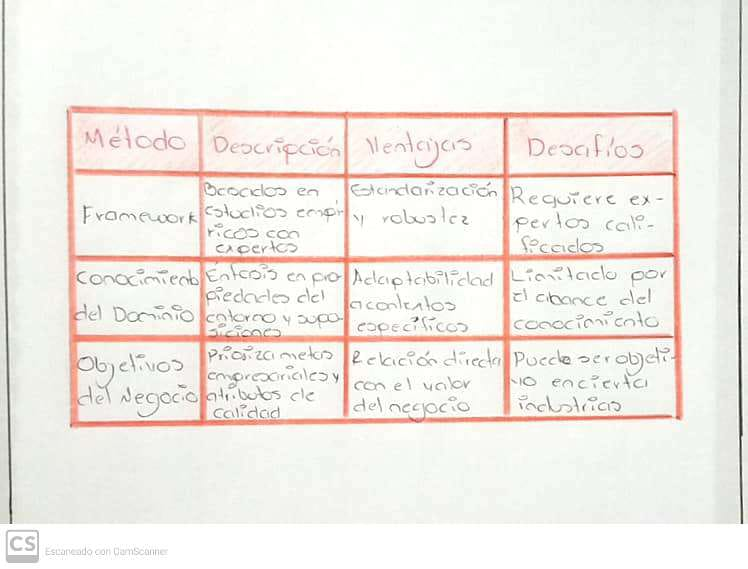 Método
Descripción
Ventajas
Desafíos
Framework
Basados en
estudios empí-
ricos con
expertos
Estandarización
y robustez
Requiere ex-
pertos cali-
ficados
Conocimiento
del Dominio
Énfasis en pro-
piedades del
entorno y supo-
siciones
Adaptabilidad
a contextos
específicos
Limitado por
el alcance del
conocimiento
Objetivos
del Negocio
Prioriza metas
empresariales y
atributos de
calidad
Relación directa
con el valor
del negocio
Puede ser objeti-
vo en cierta
industrias
CS
Escaneado con CamScanner